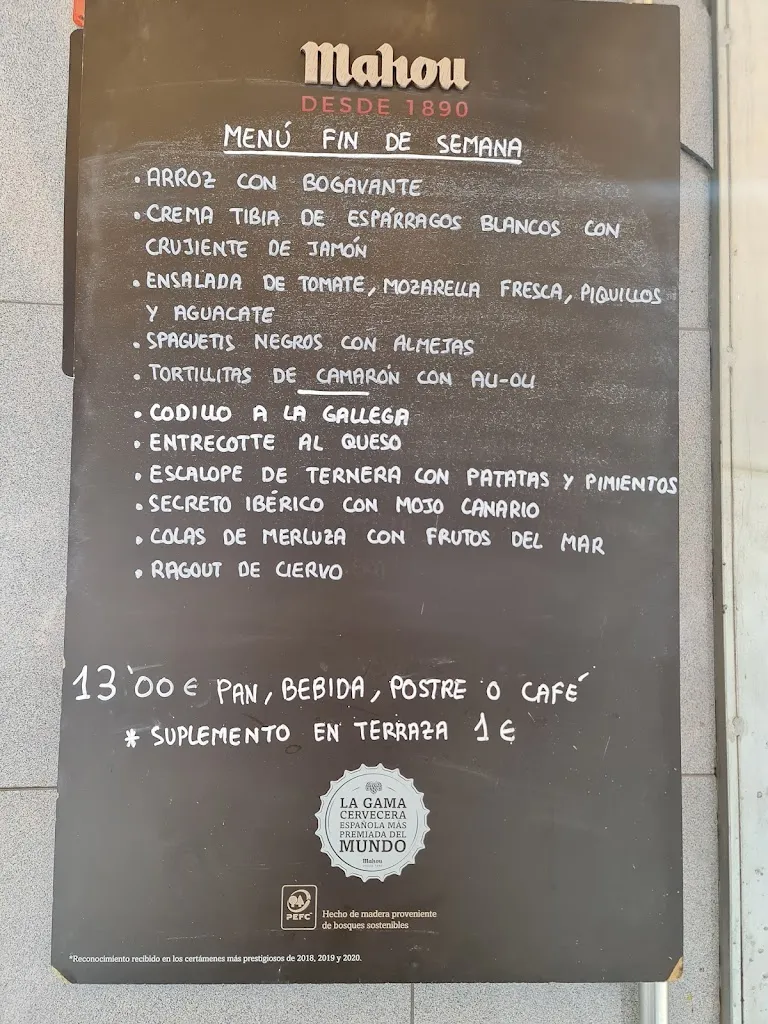 Mahou
DESDE 1890
MENÚ FIN DE SEMANA
• ARROZ CON BOGAVANTE
• CREMA TIBIA DE ESPÁRRAGOS BLANCOS CON
CRUJIENTE DE JAMÓN
• ENSALADA DE TOMATE, MOZARELLA FRESCA, PIQUILLOS
Y AGUACATE
• SPAGUETIS NEGROS CON ALMEJAS
• TORTILLITAS DE CAMARÓN CON ALI-OLI
• CODILLO A LA GALLEGA
• ENTRECOTTE AL QUESO
• ESCALOPE DE TERNERA CON PATATAS Y PIMIENTOS
• SECRETO IBÉRICO CON MOJO CANARIO
• COLAS DE MERLUZA CON FRUTOS DEL MAR
• RAGOUT DE CIERVO
13'00 € PAN, BEBIDA, POSTRE O CAFÉ
* SUPLEMENTO EN TERRAZA 1 €
LA GAMA
CERVECERA
ESPAÑOLA MÁS
PREMIADA DEL
MUNDO
Mahou
PEFC
Hecho de madera proveniente
de bosques sostenibles
*Reconocimiento recibido en los certámenes más prestigiosos de 2018, 2019 y 2020.